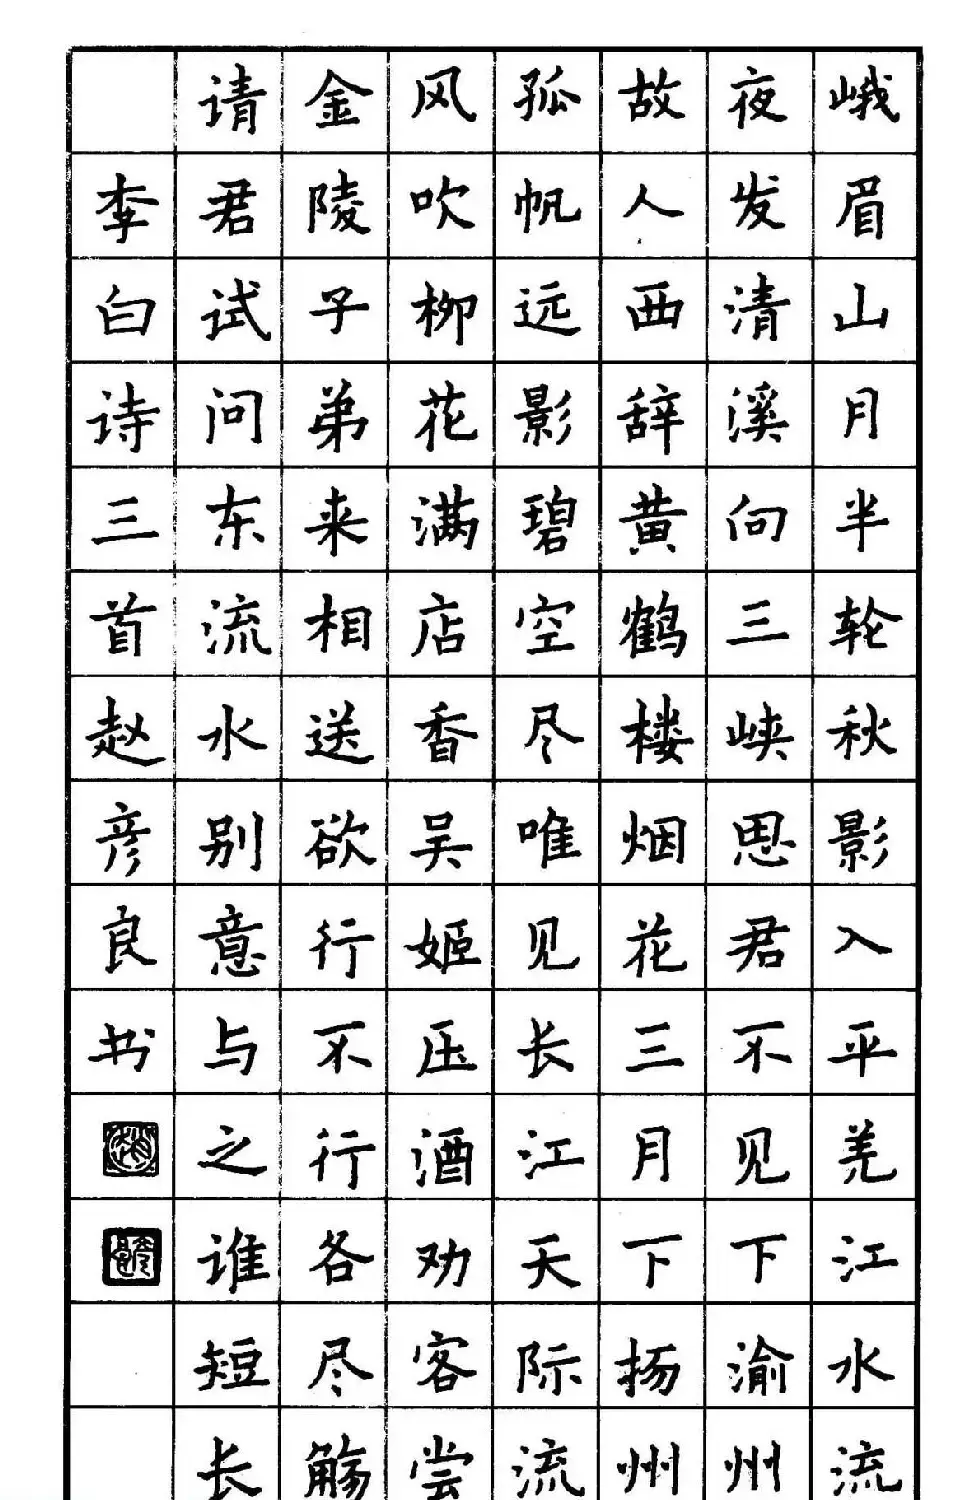 峨眉山月半轮秋影入平羌江水流
夜发清溪向三峡思君不见下渝州
故人西辞黄鹤楼烟花三月下扬州
孤帆远影碧空尽唯见长江天际流
风吹柳花满店香吴姬压酒劝客尝
金陵子弟来相送欲行不行各尽觞
请君试问东流水别意与之谁短长
李白诗三首赵彦良书